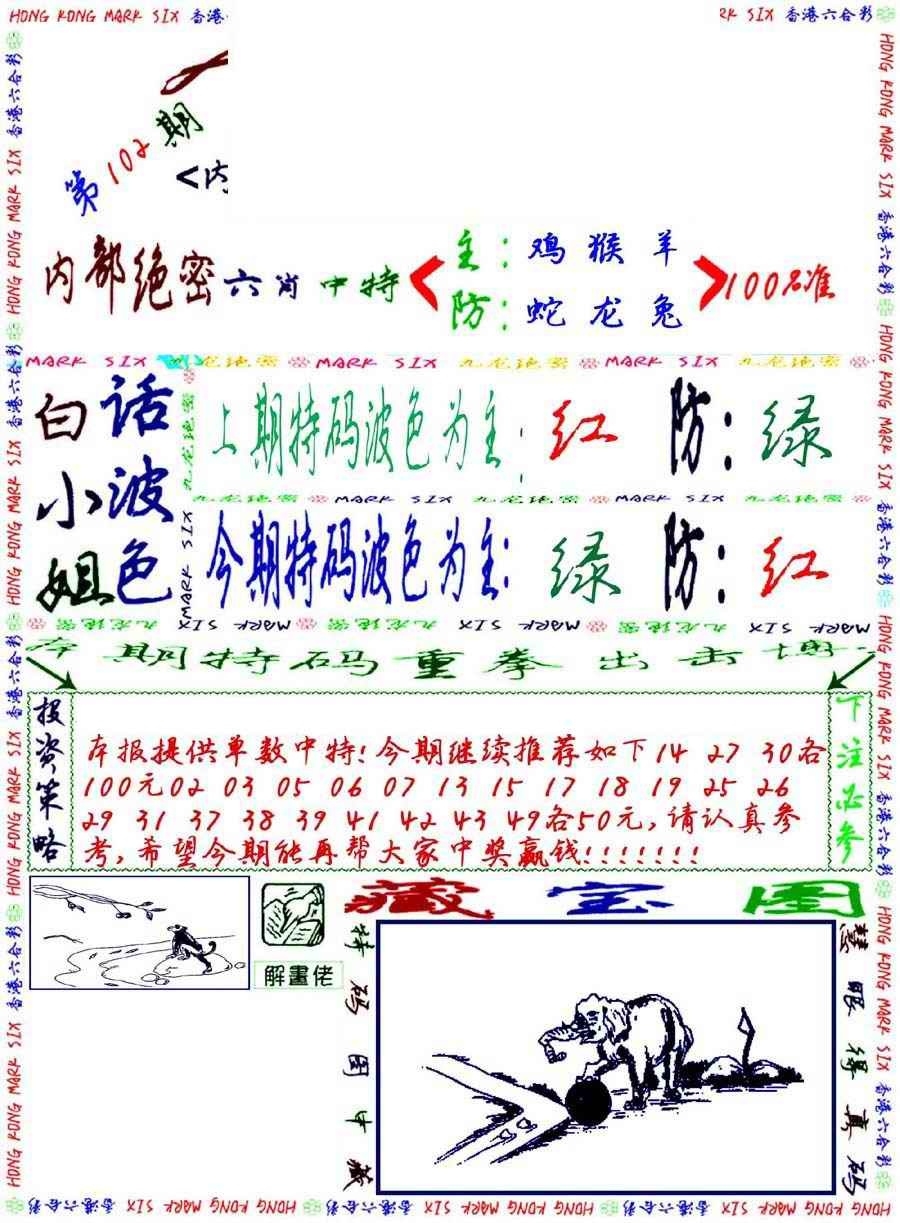 HONG KONG MARK SIX 香港
RK SIX 香港六合彩
第102期
<内
内部绝密六肖中特
主:鸡猴羊
防:蛇龙兔
100%准
MARK SIX 九龙绝密 MARK SIX 九龙绝密 MARK SIX 九龙绝密
白话
小波
姐色
上期特码波色为主:红 防:绿
九龙绝密 MARK SIX 九龙绝密 MARK SIX
今期特码波色为主:绿 防:红
MARK SIX 九龙绝密 MARK SIX 九龙绝密 MARK SIX 九龙绝密
本期特码重拳出击
投资策略
本报提供单数中特!今期继续推荐如下14 27 30各
100元02 03 05 06 07 13 15 17 18 19 25 26
29 31 37 38 39 41 42 43 49各50元,请认真参
考,希望今期能再帮大家中奖赢钱!!!!!!!
下注必参
解畫佬
藏宝图
特码图中藏
慧眼得真码
HONG KONG MARK SIX 香港六合彩 HONG KONG MARK SIX 香港六合彩 HONG KONG MARK SIX 香港六合彩